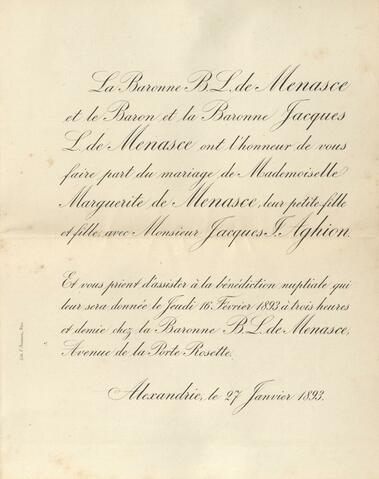 La Baronne B. L. de Menasce
et le Baron et la Baronne Jacques
L. de Menasce ont l'honneur de vous
faire part du mariage de Mademoiselle
Marguerite de Menasce, leur petite-fille
et fille, avec Monsieur Jacques I. Aghion.
Et vous prient d'assister à la bénédiction nuptiale qui
leur sera donnée le Jeudi 16 Février 1893 à trois heures
et demie chez la Baronne B. L. de Menasce,
Avenue de la Porte Rosette.
Alexandrie, le 27 Janvier 1893.